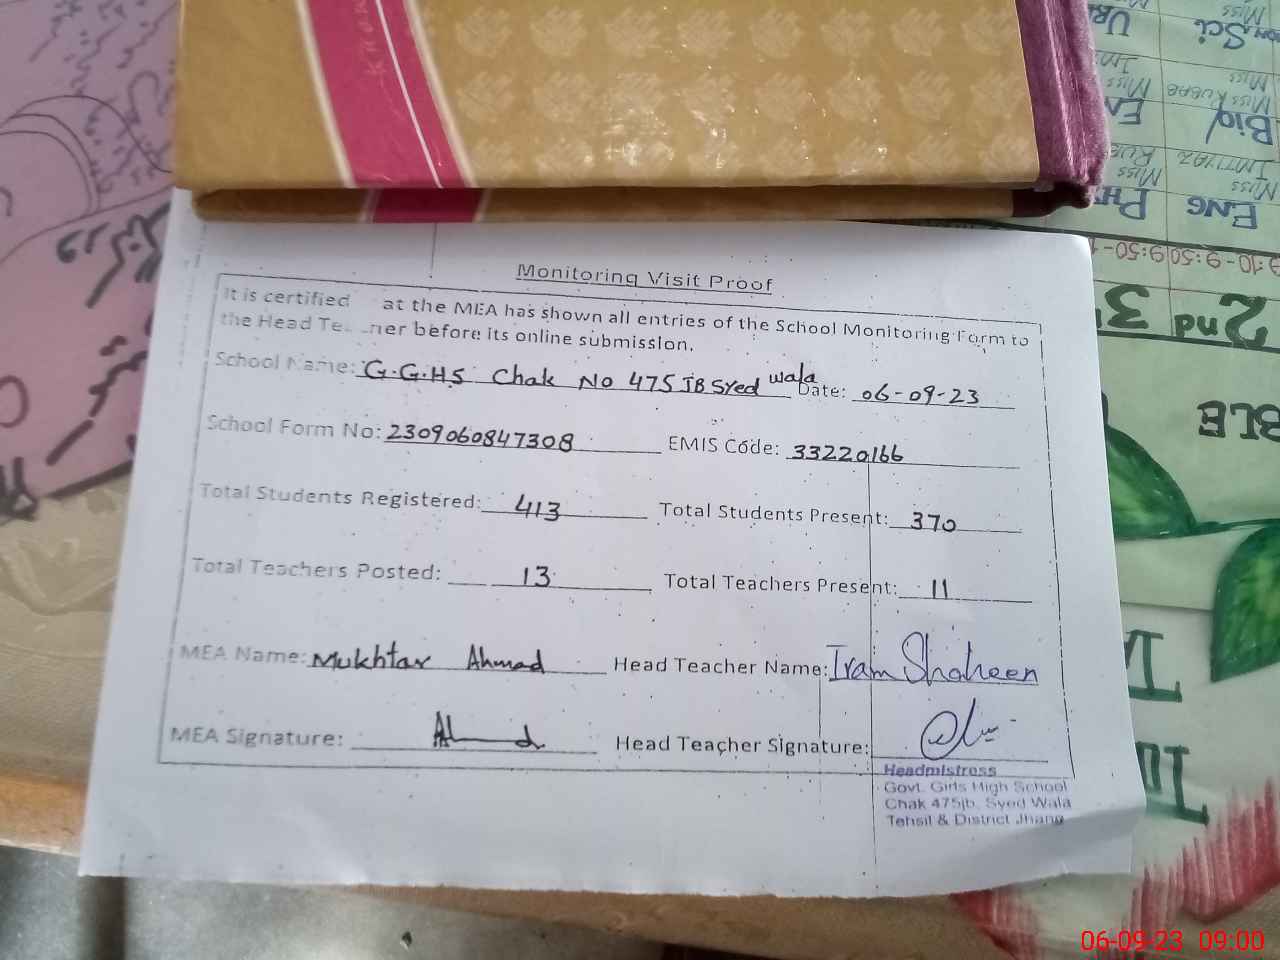 Monitoring Visit Proof
It is certified at the MEA has shown all entries of the School Monitoring Form to
the Head Te. .ner before its online submission.
School Name: G.G.H.S Chak No 475 JB Syed wala Date: 06-09-23
School Form No: 2309060847308 EMIS Code: 33220166
Total Students Registered: 413 Total Students Present: 370
Total Teachers Posted: 13 Total Teachers Present: 11
MEA Name: Mukhtar Ahmad Head Teacher Name: Iram Shaheen
MEA Signature: Ahmad Head Teacher Signature:
Headmistress
Govt. Girls High School
Chak 475jb, Syed Wala
Tehsil & District Jhang
Sci
Bio
Miss
IMTIYAZ
Miss
ENG
9:10-9:50
2nd
BLE
06-09-23 09:00